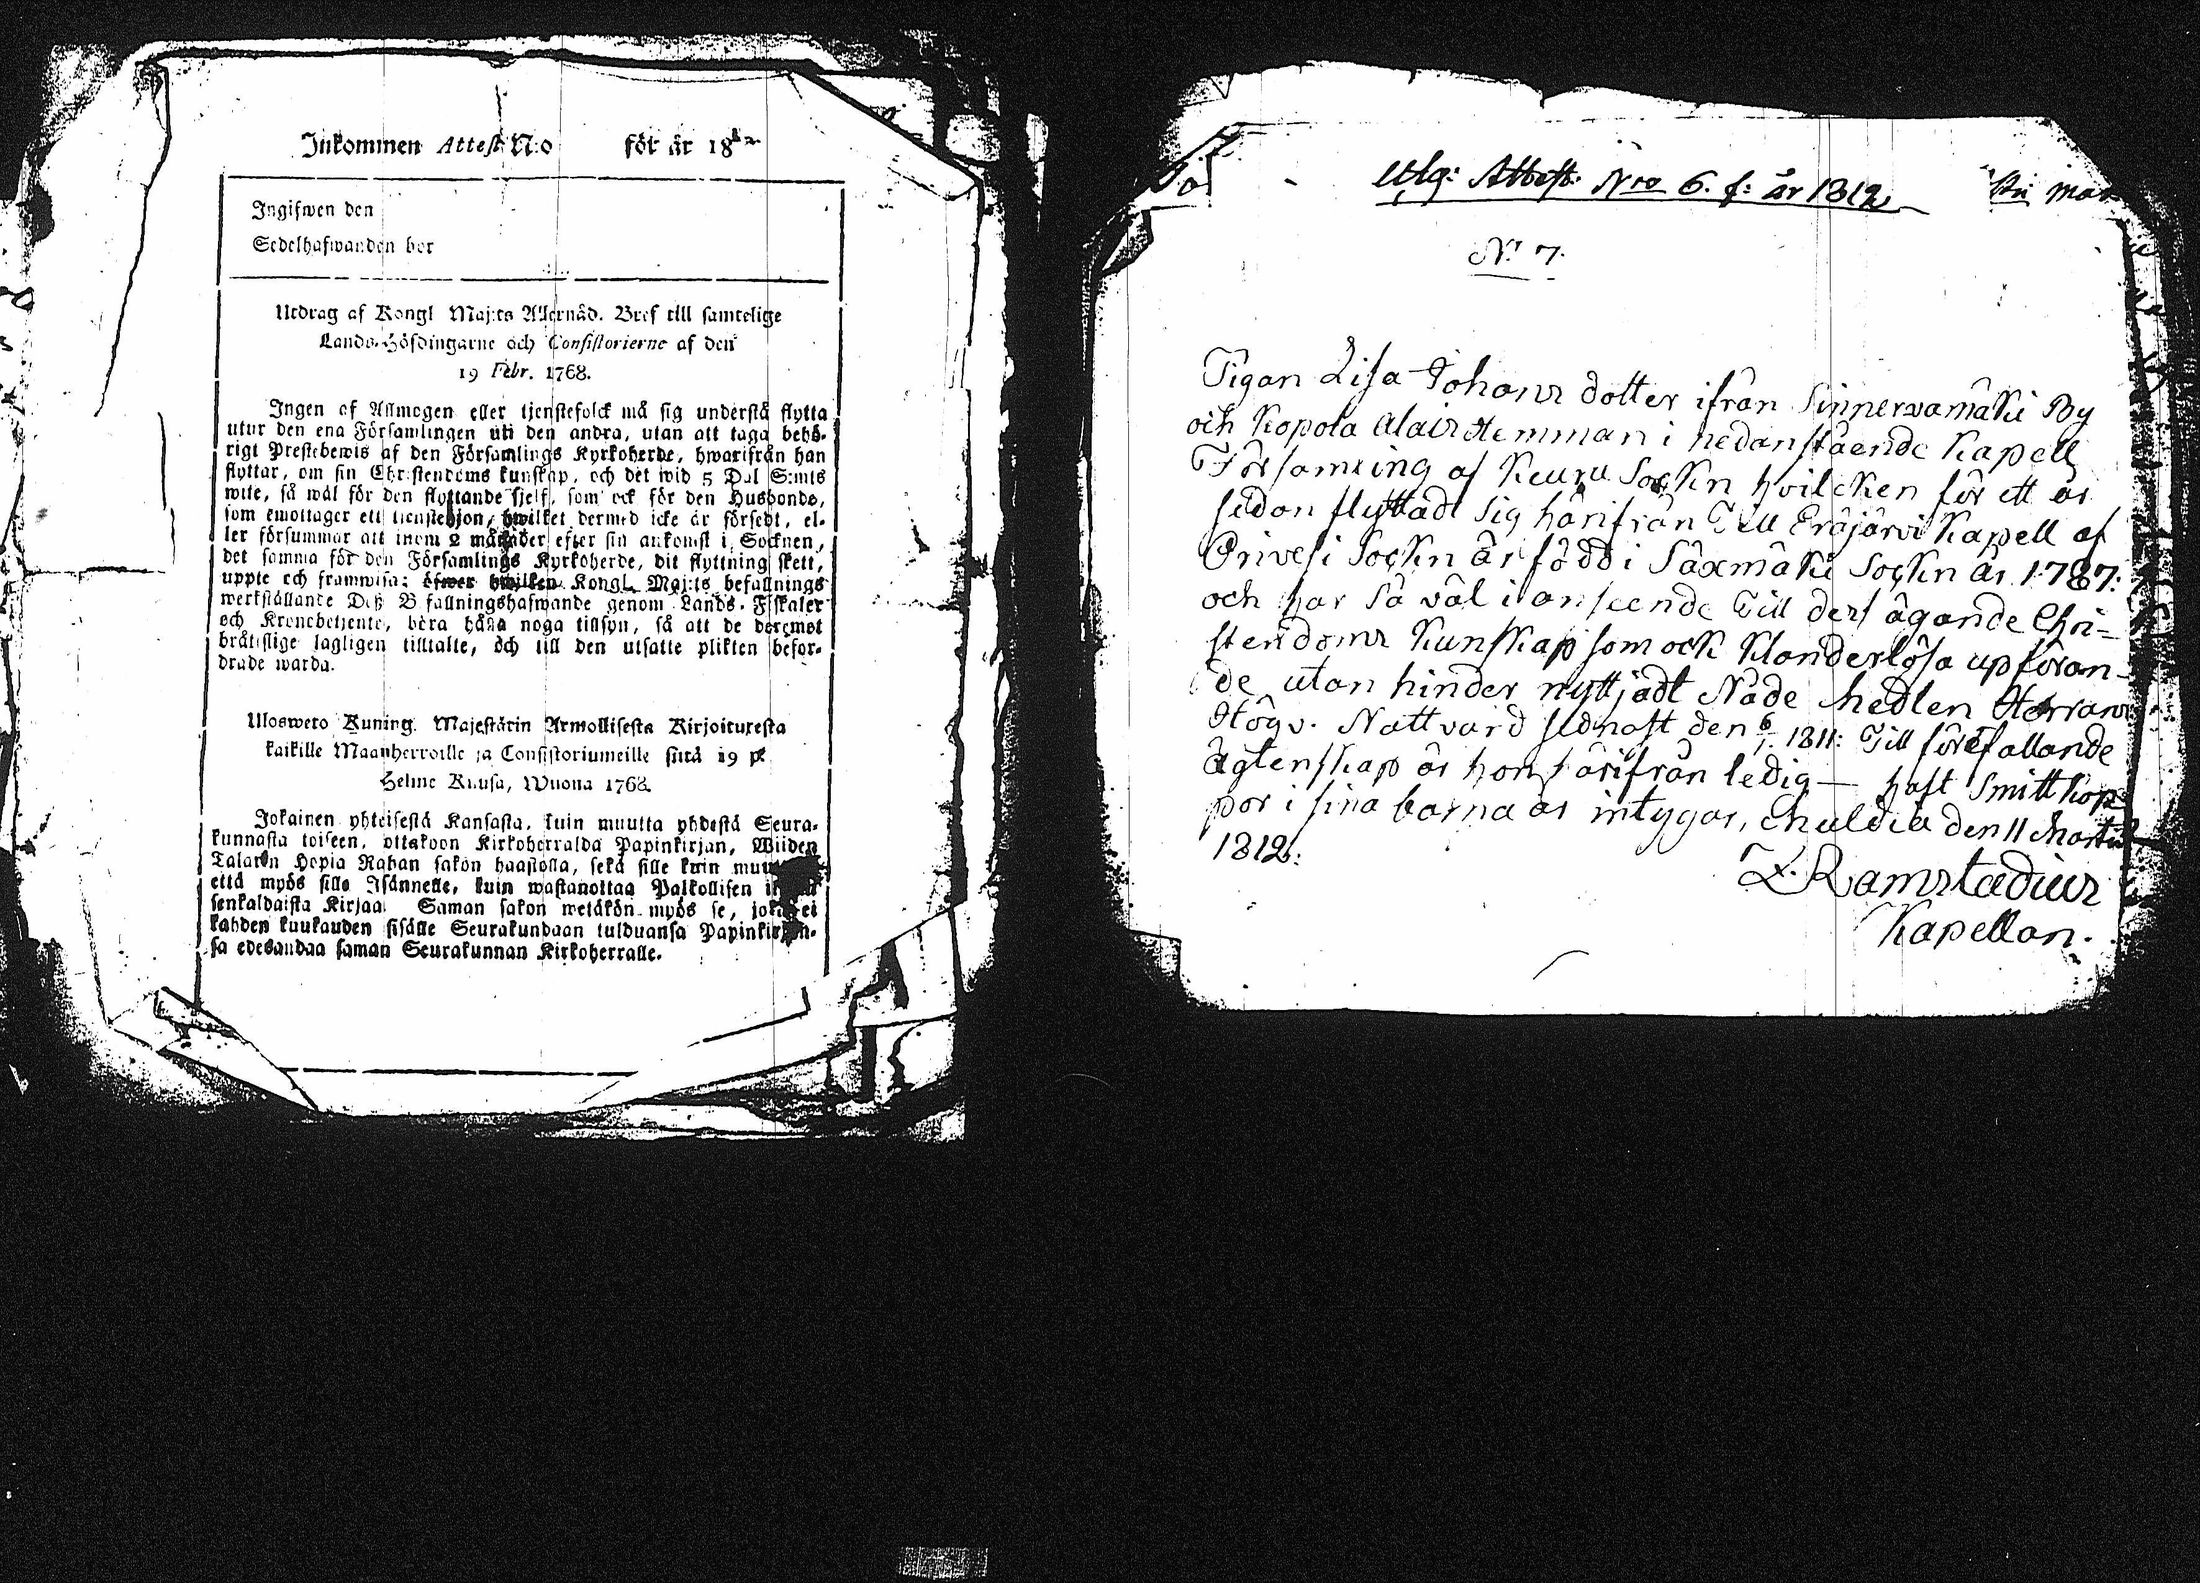 Inkommen Attest N:o för år 1812
Ingifwen den
Sedelhafwanden bor
Utdrag af Kongl Maj:ts Allernåd. Bref till samtelige
Lands-Höfdingarne och Consistorierne af den
19 Febr. 1768.
Ingen af Allmogen eller tjenstefolck må sig understå flytta
utur den ena Församlingen uti den andra, utan att taga behö-
rigt Prestebewis af den Församlings Kyrkoherde, hwarifrån han
flyttar, om sin Christendoms kunskap, och det wid 5 Dal S:mts
wite, så wäl för den flyttande sjelf, som ock för den Husbonde,
som emottager ett tienstehjon, hwilket dermed icke är försedt, el-
ler försummar att inom 2 månader efter sin ankomst i Socknen,
det samma för den Församlings Kyrkoherde, dit flyttning skett,
uppte och framwisa: öfwer hwilken Kongl. Maj:ts befallnings
werkställande Deß Befallningshafwande genom Lands-Fiskaler
och Kronobetjente, böra hålla noga tillsyn, så att de deremot
bråtslige lagligen tilltalte, och till den utsatte plikten befor-
drade warda.
Ulosweto Kuning. Majestätin Armollisesta Kirjoituxesta
kaikille Maanherroille ja Consistoriumeille siitä 19 p:
Helme Kuusa, Wuona 1768.
Jokainen yhteisestä Kansasta, kuin muutta yhdestä Seura-
kunnasta toiseen, ottakoon Kirkoherralda Papinkirjan, Wiiden
Talarin Hopia Rahan sakon haastolla, sekä sille kuin
että myös sille Isännelle, kuin wastanottaa Palkollisen
senkaldaista Kirjaa. Saman sakon wetäkön myös se, joka ei
kahden kuukauden sisälle Seurakundaan tulduansa Papinkirjan-
sa edesandaa saman Seurakunnan Kirkoherralle.
Utg: Attest: Nro 6. f: år 1812
N:o 7.
Pigan Lisa Johans dotter ifrån Sinnervamäki By
och Kopola Alais Hemman i nedanstående Kapell
Församling af Keuru Sockn hvilcken för ett år
sedan flyttadt sig härifrån Till Eräjärvi Kapell af
Orivesi Sockn är född i Säxmäki Sockn år 1787:
och har så väl i anseende Till dess ägande Chri-
stendoms Kunskap som ock Klanderlösa upföran-
de utan hinder nyttjadt Nåde Medlen Herrans
Högv. Nattvard sednast den 6/1. 1811: Till förefallande
Ägtenskap är hon härifrån ledig — haft Smittkop-
por i sina barna år intygar, Muldia den 11 Martii
1812:
Z. Ramstadius
Kapellan.